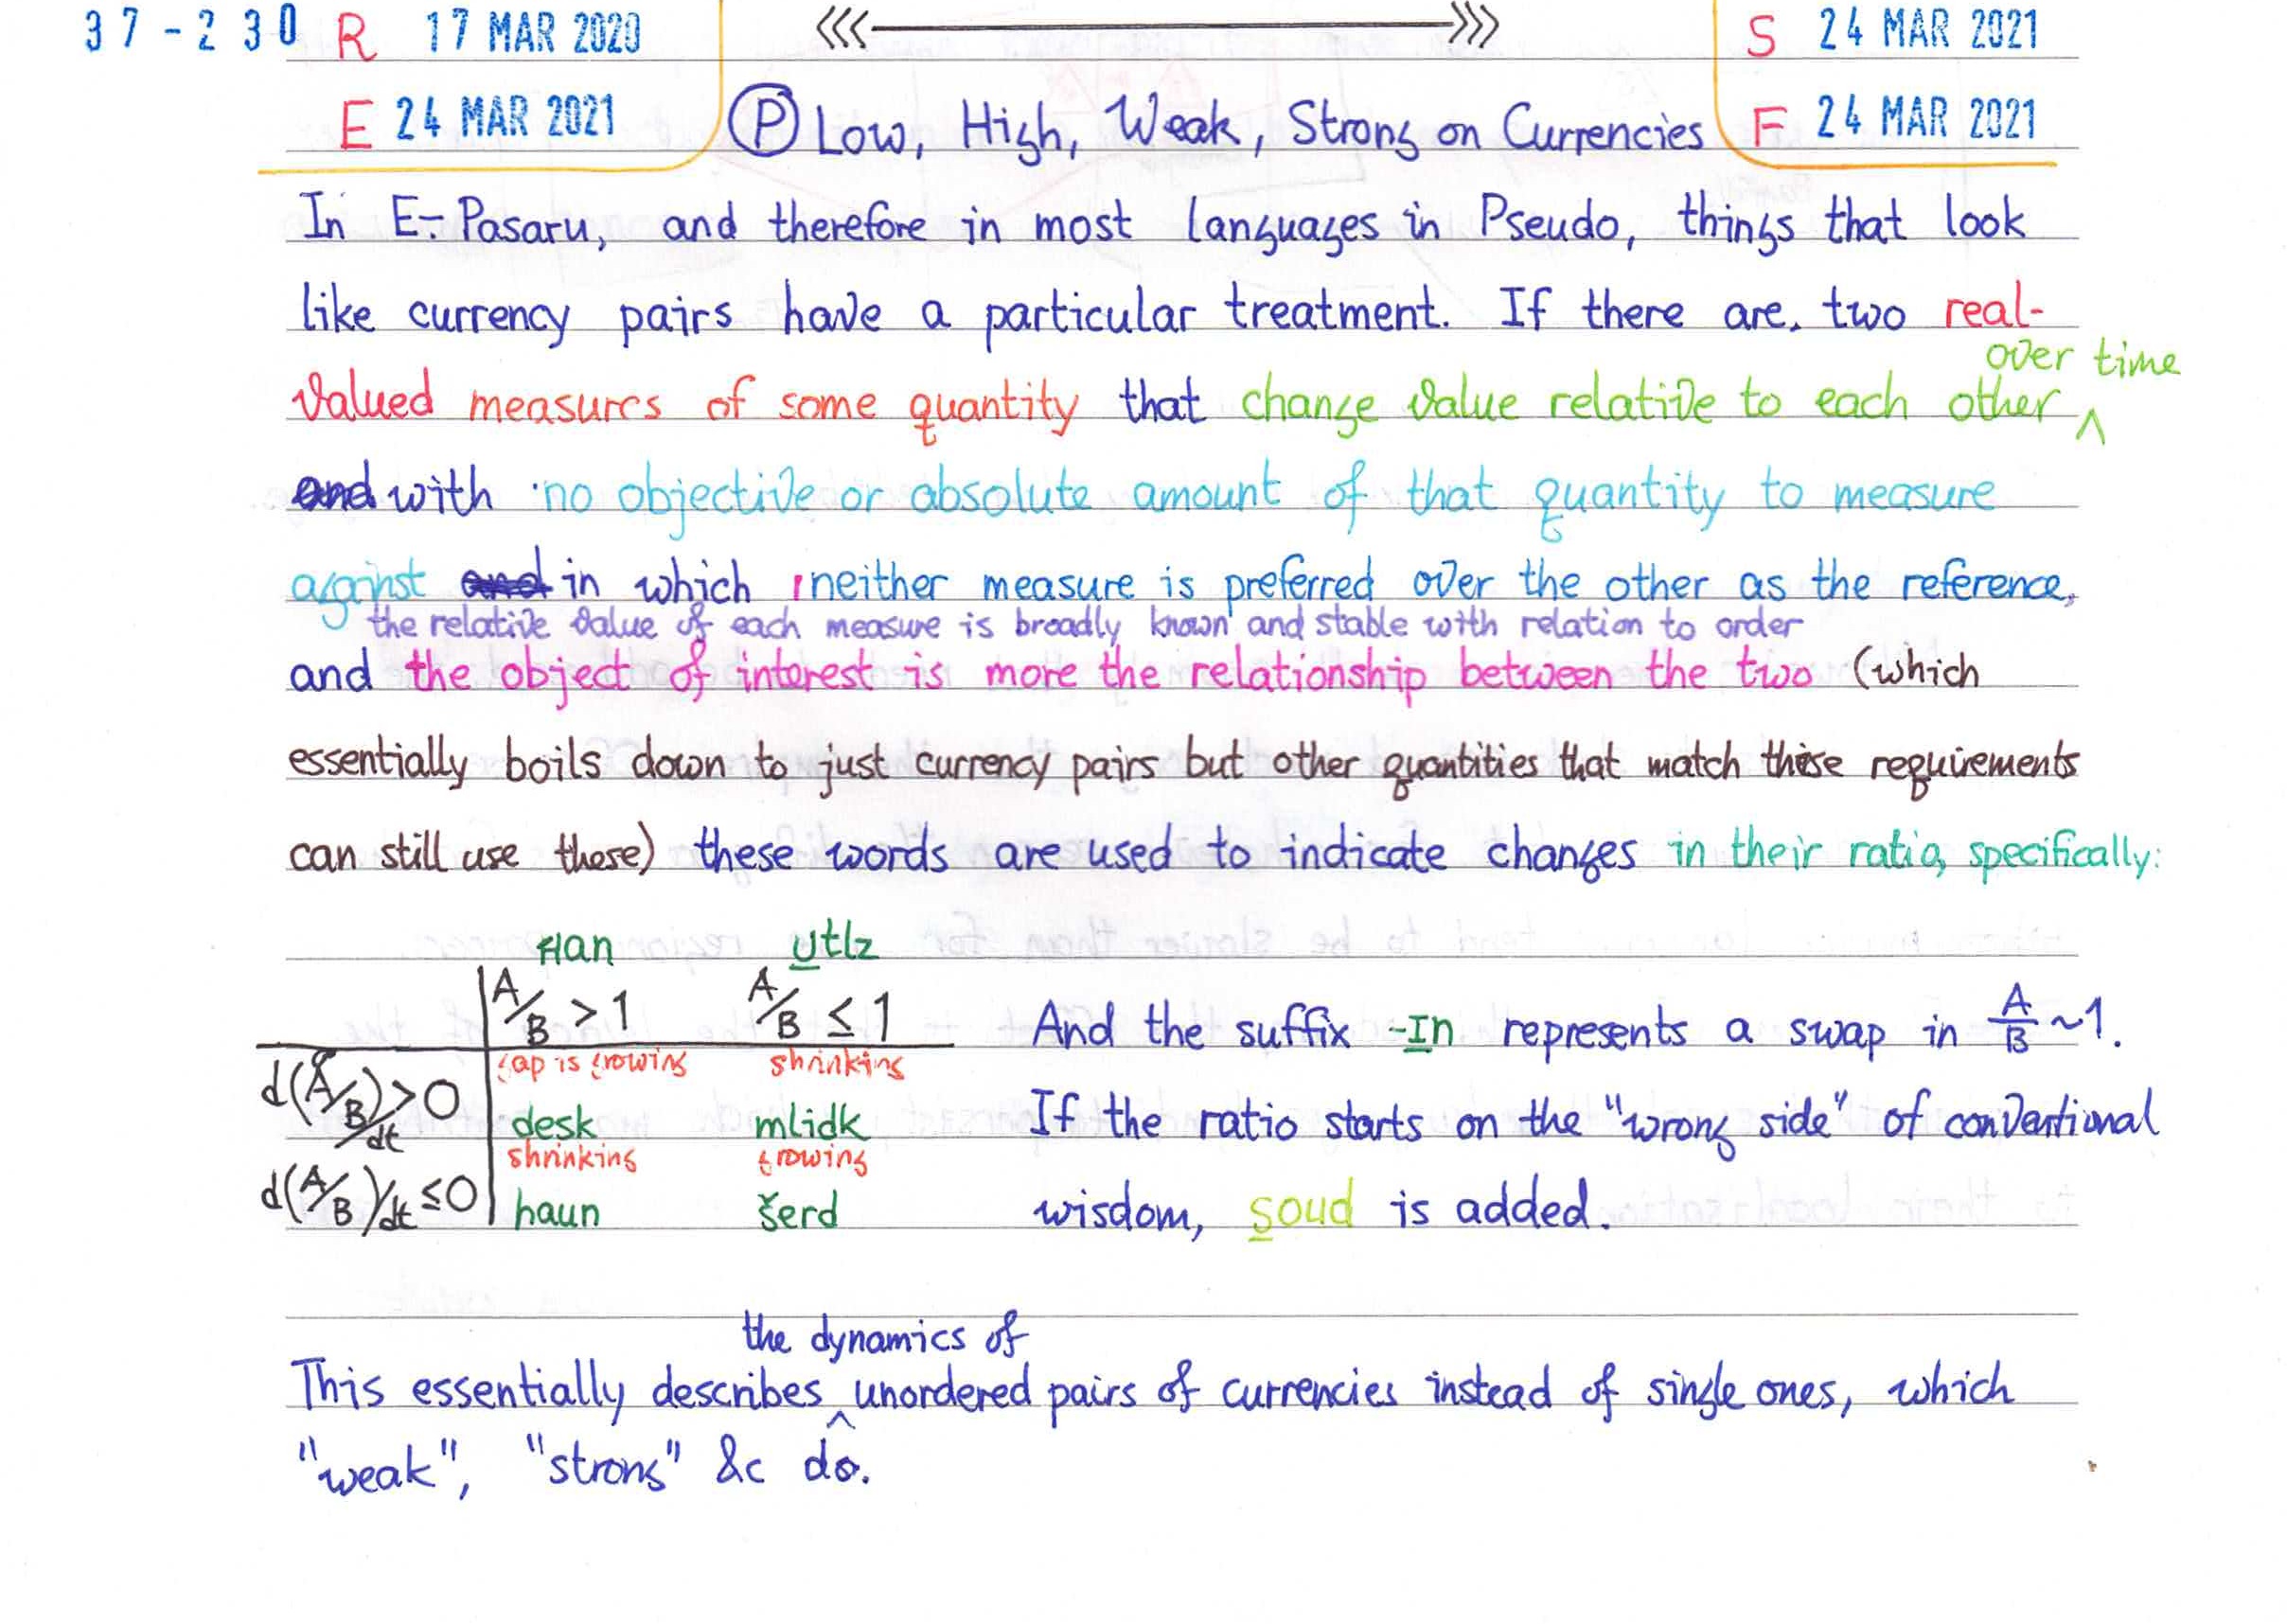 37-230 R 17 MAR 2020 <<<———>>> S 24 MAR 2021
E 24 MAR 2021 Ⓟ Low, High, Weak, Strong on Currencies F 24 MAR 2021
In E-Pasaru, and therefore in most languages in Pseudo, things that look
like currency pairs have a particular treatment. If there are two real-
over time
valued measures of some quantity that change value relative to each other ^
and with no objective or absolute amount of that quantity to measure
against and in which neither measure is preferred over the other as the reference,
the relative value of each measure is broadly known and stable with relation to order
and the object of interest is more the relationship between the two (which
essentially boils down to just currency pairs but other quantities that match these requirements
can still use these) these words are used to indicate changes in their ratio, specifically:
utlz
A/B > 1 A/B ≤ 1 And the suffix -In represents a swap in A/B ~1.
gap is growing shrinking
d(A/B)/dt > 0 desk mlidk If the ratio starts on the "wrong side" of conventional
shrinking growing
d(A/B)/dt ≤ 0 haun šerd wisdom, soud is added.
the dynamics of
This essentially describes ^ unordered pairs of currencies instead of single ones, which
"weak", "strong" &c do.